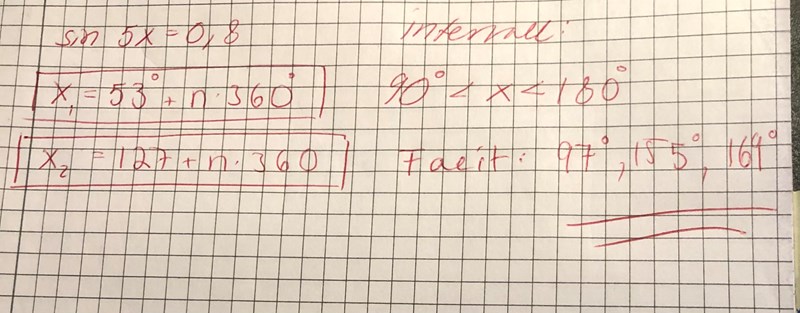 sin 5x = 0,8
intervall:
x₁ = 53° + n·360°
90° < x < 180°
x₂ = 127 + n·360
Facit: 97°, 155°, 169°